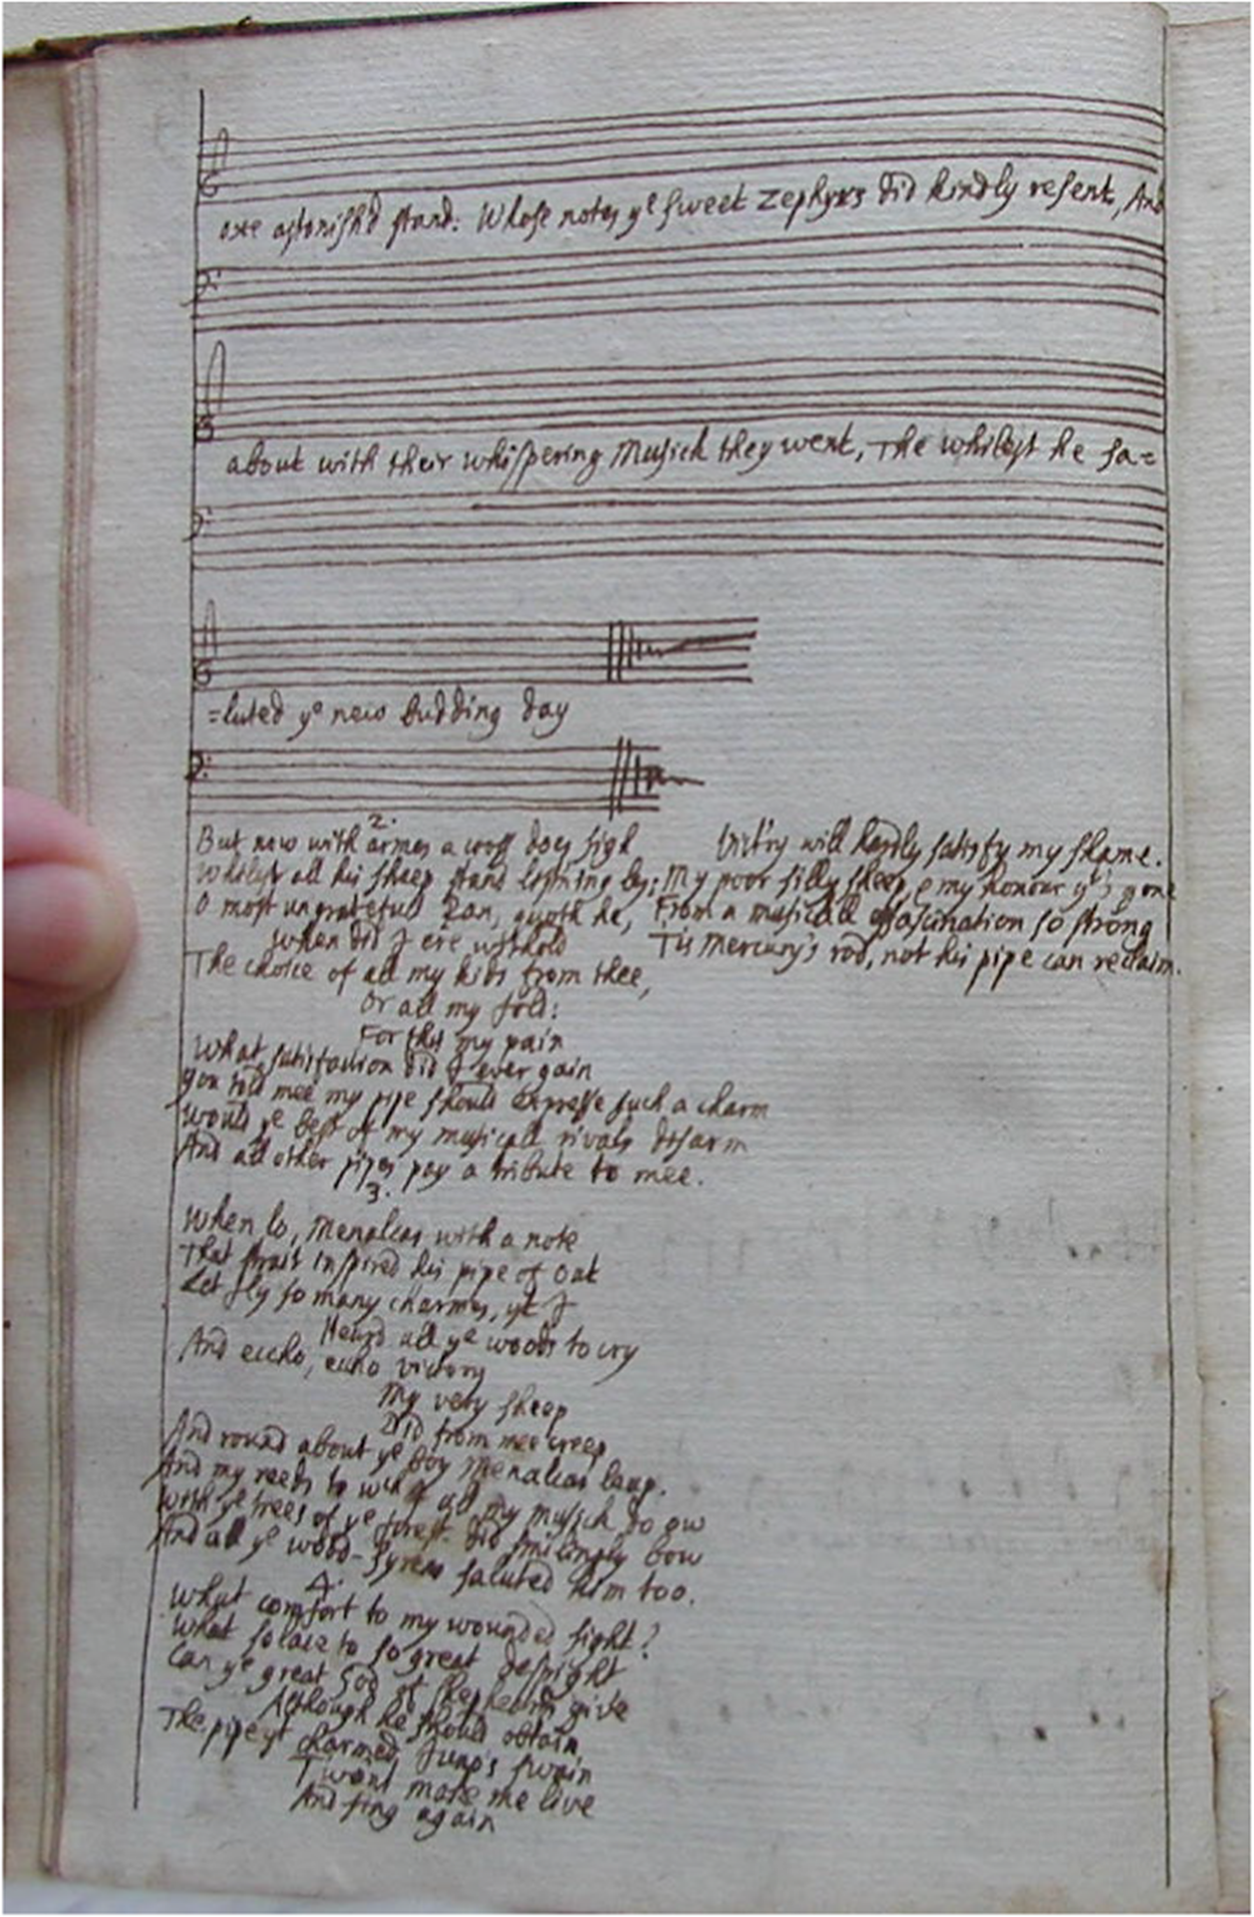 oxe astonish'd stand: Whose notes ye sweet Zephyrs did kindly resent, And
about with their whispering Musick they went, The whilest he sa=
=luted ye new budding day
2.
But now with armes a does sigh
Whilest all his sheep stand listning by;
O most ungratefull Pan, quoth he,
When did I ere withold
The choice of all my kids from thee,
Or all my fold:
For this my pain
What satisfaction did I ever gain
You told mee my pipe should expresse such a charm
Would ye best of my musicall rivals disarm
And all other pipes pay a tribute to mee.
3.
When lo, Menalcas with a note
That strait inspired his pipe of oat
Let fly so many charmes, yt I
Heard all ye woods to cry
And eccho, echo victory
My very sheep
Did from mee creep
And round about ye boy Menalcas leap.
And my reeds to wch I all my musick do ow
With ye trees of ye forest did smilingly bow
And all ye wood-Syrens saluted him too.
4.
What comfort to my wounded sight?
What solace to so great despight
Can ye great God of shepheards give
Although he should obtain
The pipe yt charmed Juno's swain
Twont make me live
And sing again
Victry will hardly satisfy my shame.
My poor silly sheep, & my honour yt's gone
From a musicall fascination so strong
Tis Mercury's rod, not his pipe can reclaim.